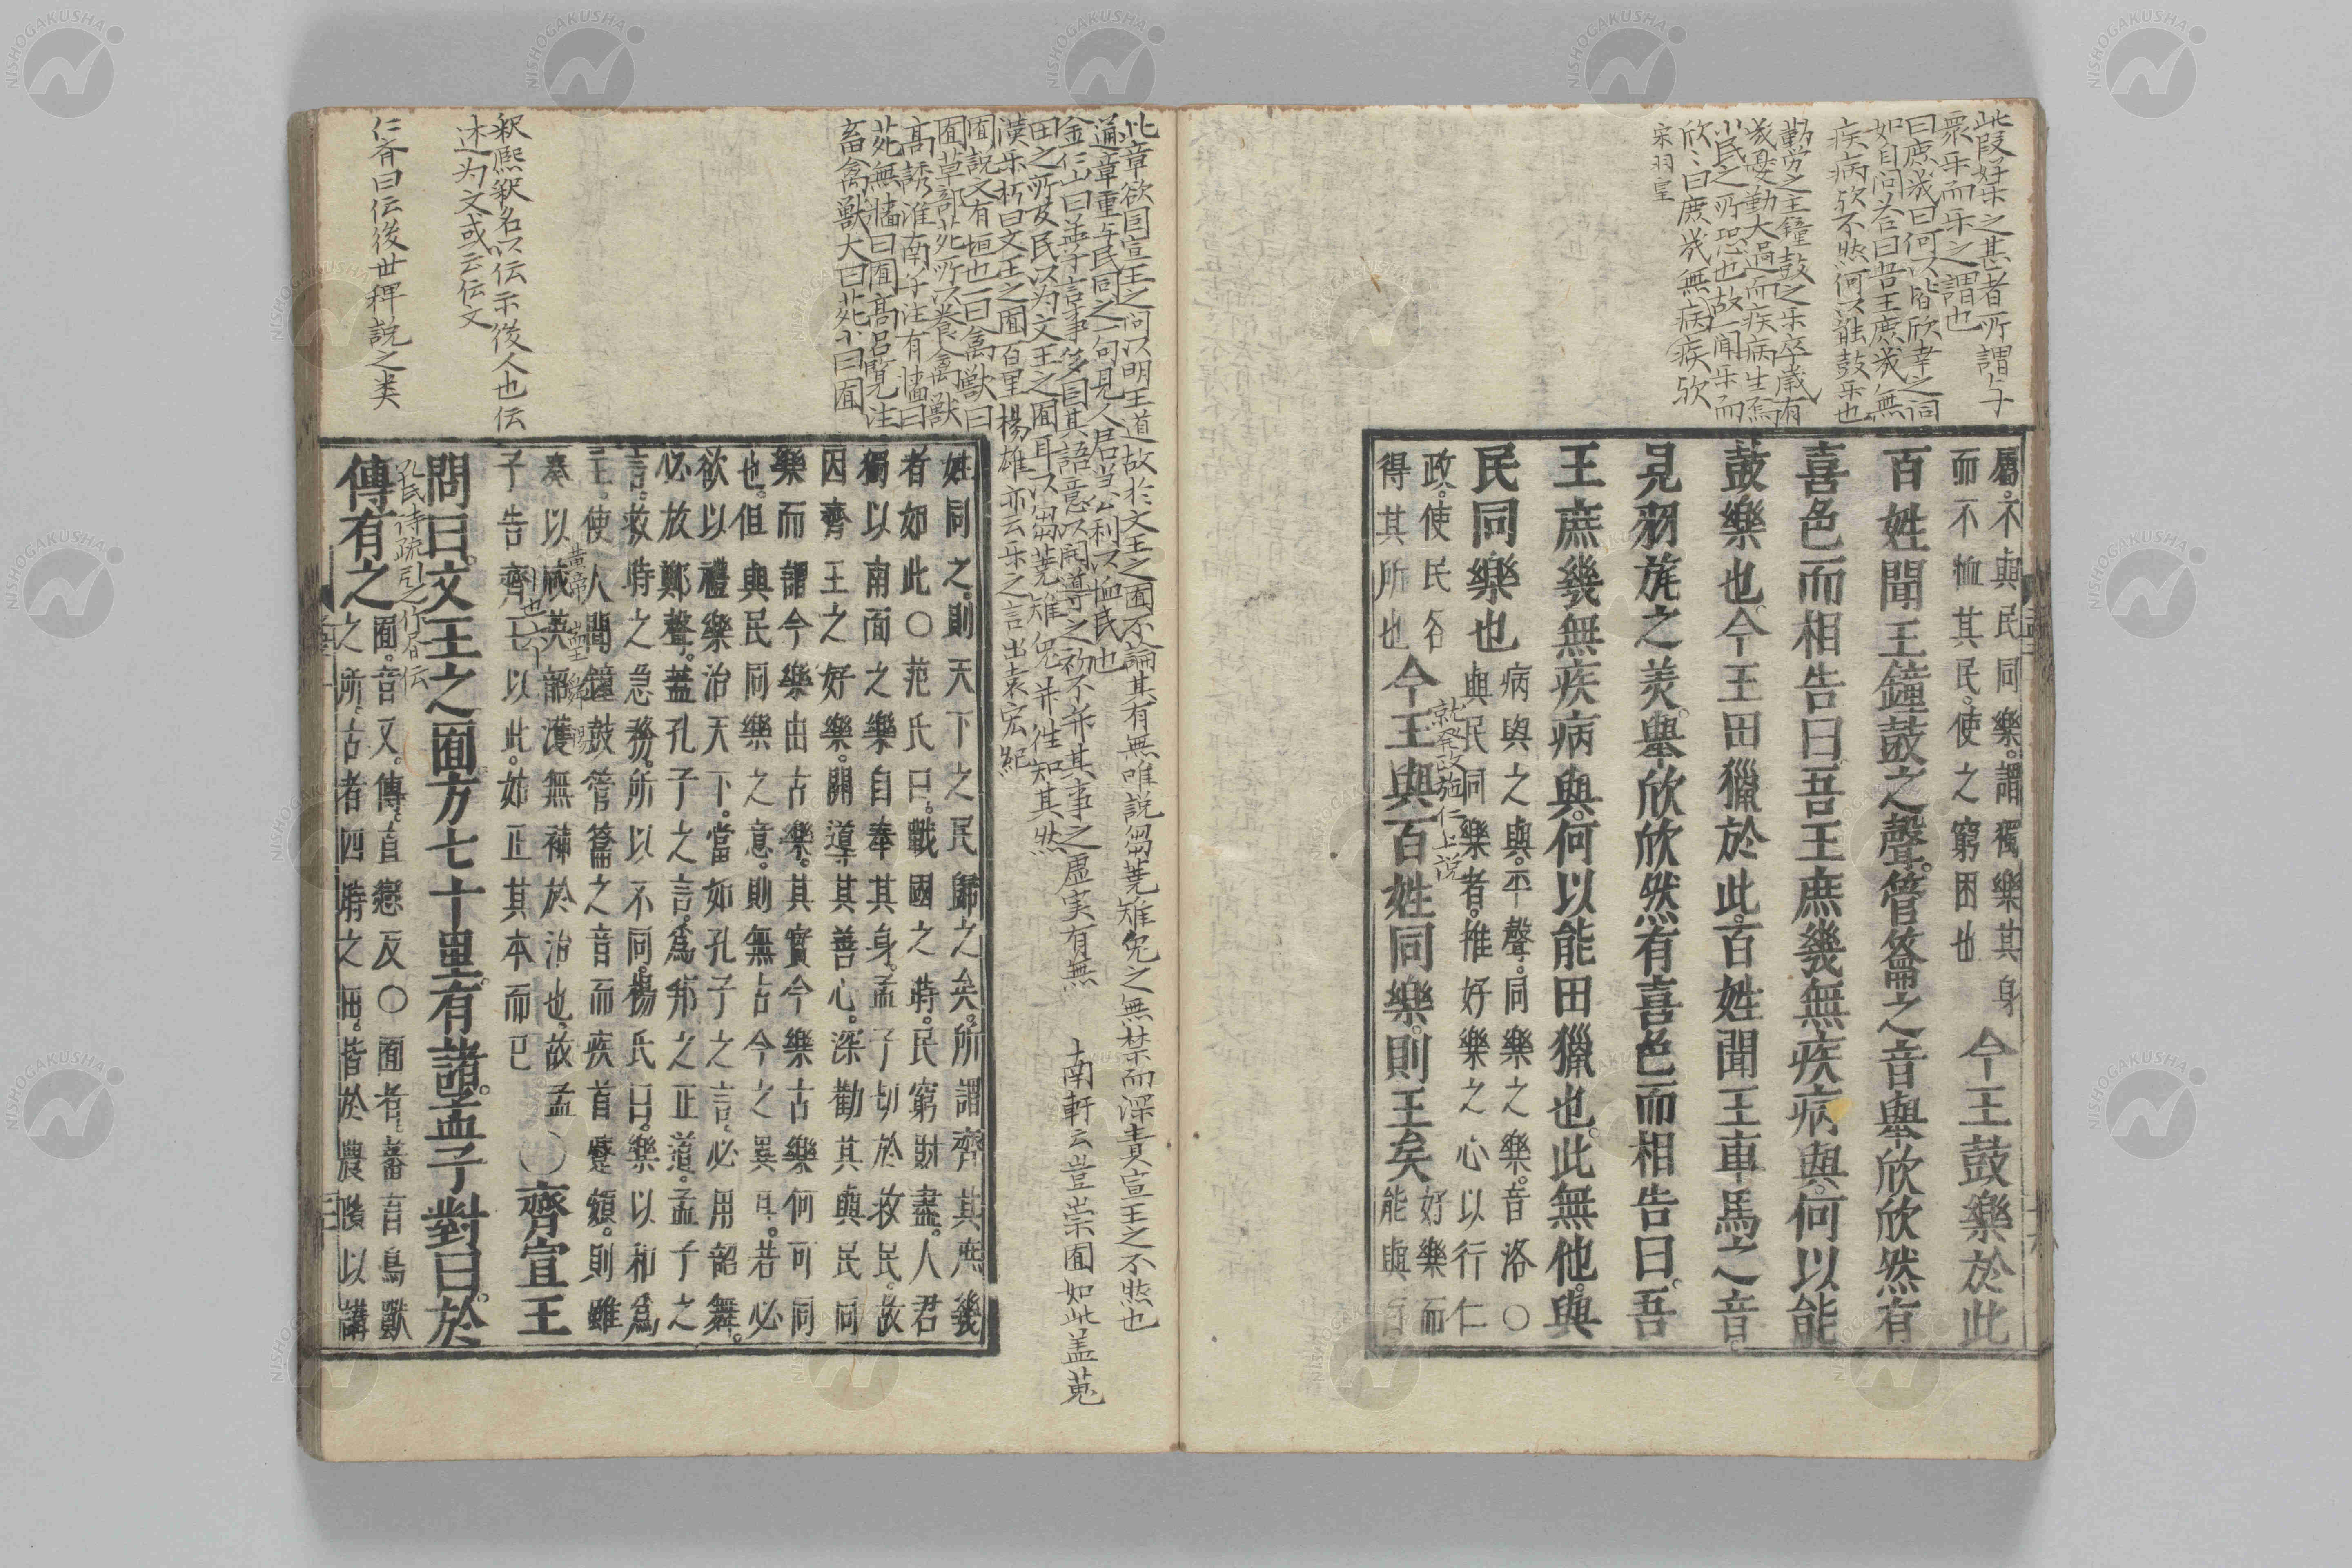 此段好樂之甚者所謂与
衆乐而乐之謂也
曰庶幾曰何以皆欣幸之詞
如自問答曰吾王庶幾無
疾病欤不然何以能鼓乐也
勤労之王鐘鼓之乐卒歳有
幾憂勤大過而疾病生焉
小民之所恐也故一聞乐而
欣〻曰庶幾無病疾欤
宋羽皇
屬。不與民同樂。謂獨樂其身
而不恤其民。使之窮困也
今王鼓樂於此
百姓聞王鐘鼓之聲。管籥之音。舉欣欣然有
喜色而相告曰。吾王庶幾無疾病與。何以能
鼓樂也。今王田獵於此。百姓聞王車馬之音。
見羽旄之美。舉欣欣然有喜色而相告曰。吾
王庶幾無疾病與。何以能田獵也。此無他。與
民同樂也
病與之與。平聲。同樂之樂。音洛○
與民同樂者。推好樂之心以行仁
就発政施仁上説
政。使民各
得其所也
今王與百姓同樂。則王矣
好樂而
能與百
此章欲因宣王之问以明王道故於文王之囿不論其有無唯説芻蕘雉兔之無禁而深責宣王之不然也
通章重与民同之一句見人君当公利以恤民也
金仁山曰孟子言事多因其語意以開導之初不弁其事之虚実有無
南軒云豈崇囿如此盖蒐
田之所及民以为文王之囿耳以芻蕘雉兔并往知其然
漢乐松曰文王之囿百里楊雄亦云乐之言出袁宏紀
囿説文有垣也一曰禽獣曰
囿草部苑所以養禽獣
高誘淮南子注有墻曰
苑無墻曰囿高呂覧注
畜禽獣大曰苑小曰囿
姓同之。則天下之民歸之矣。所謂齊其庶幾
者如此○范氏曰。戰國之時。民窮財盡。人君
獨以南面之樂自奉其身。孟子切於救民。故
因齊王之好樂。開導其善心。深勸其與民同
樂而謂今樂由古樂。其實今樂古樂何可同
也。但與民同樂之意。則無古今之異耳。若必
欲以禮樂治天下。當如孔子之言。必用韶舞。
必放鄭聲。蓋孔子之言。爲邦之正道。孟子之
言。救時之急務。所以不同。楊氏曰。樂以和爲
主。使人聞鐘鼓管籥之音而疾首蹙頞。則雖
奏以咸英韶濩無補於治也。故孟
子告齊王以此。姑正其本而已
○齊宣王
釈熙釈名以伝示後人也伝
述为文或云伝文
問曰。文王之囿方七十里。有諸。孟子對曰。於
孔氏詩疏引之作書伝
仁斉曰伝後世稗説之类
傳有之
囿。音又。傳。直戀反○囿者。蕃育鳥獸
之所。古者四時之田。皆於農隙以講